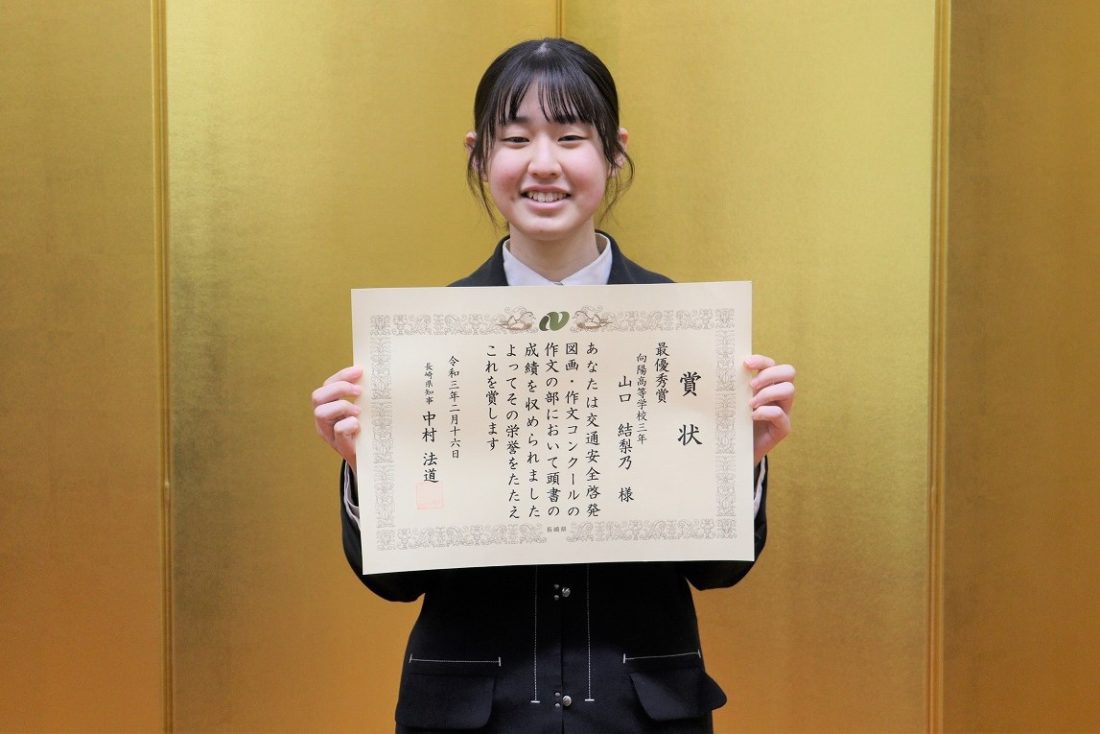 賞状
最優秀賞
向陽高等学校三年
山口 結梨乃 様
あなたは交通安全啓発
図画・作文コンクールの
作文の部において頭書の
成績を収められました
よってその栄誉をたたえ
これを賞します
令和三年二月十六日
長崎県知事 中村 法道
長崎県